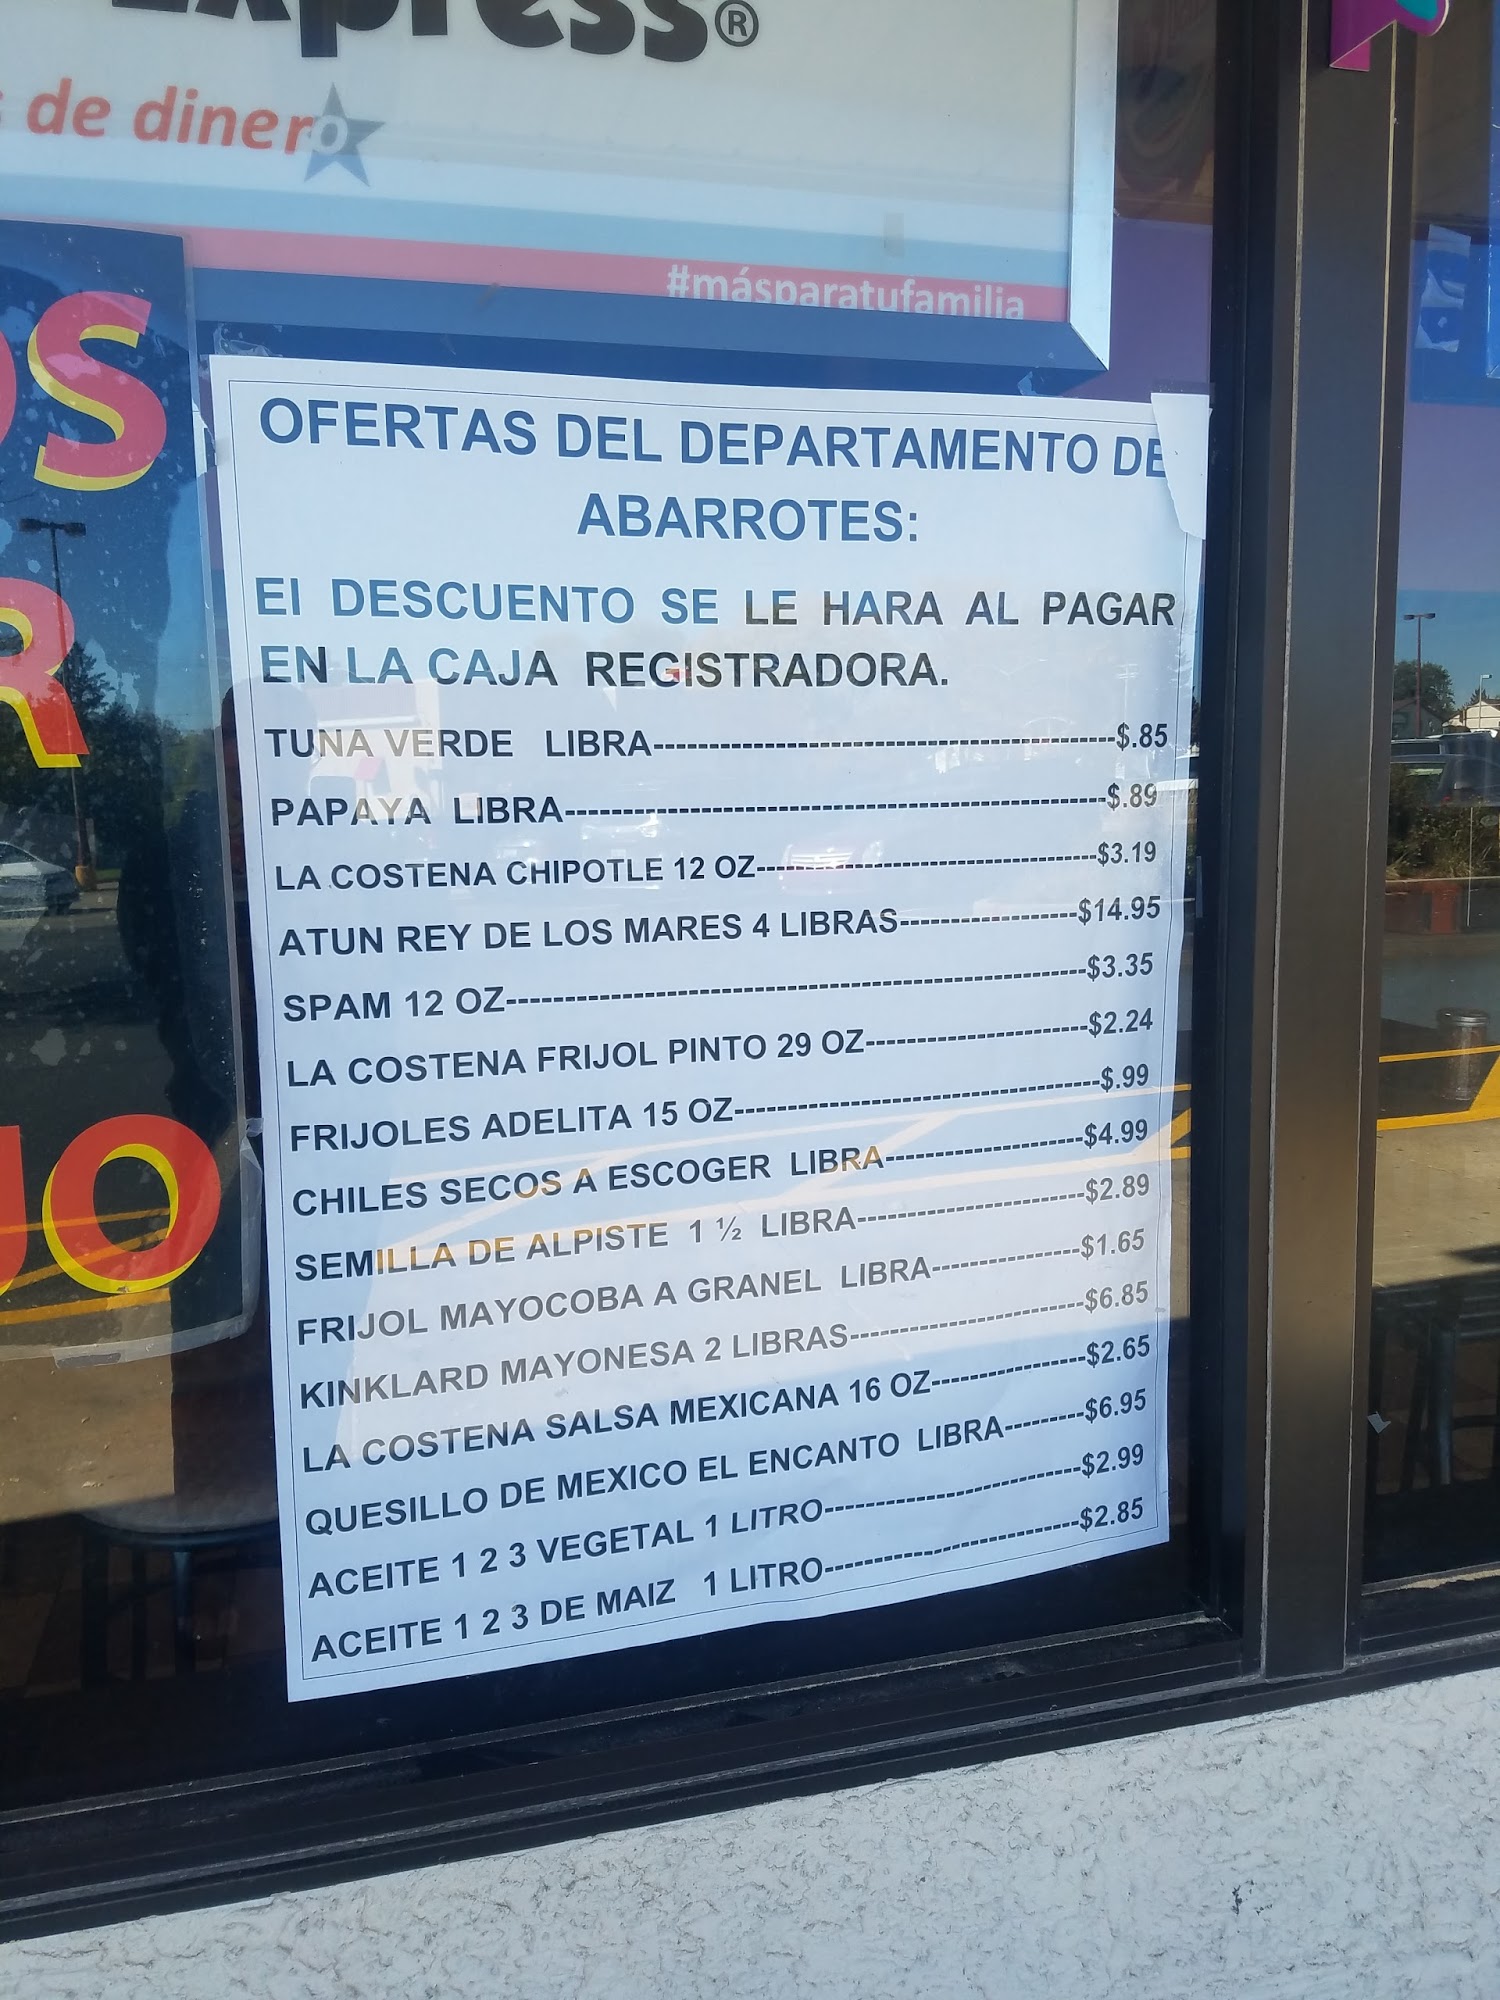 Express®
de dinero
#másparatufamilia
OS
R
JO
OFERTAS DEL DEPARTAMENTO DE
ABARROTES:
El DESCUENTO SE LE HARA AL PAGAR
EN LA CAJA REGISTRADORA.
TUNA VERDE LIBRA-------------------------------------------$.85
PAPAYA LIBRA--------------------------------------------------$.89
LA COSTENA CHIPOTLE 12 OZ--------------------------------$3.19
ATUN REY DE LOS MARES 4 LIBRAS-----------------$14.95
SPAM 12 OZ------------------------------------------------------$3.35
LA COSTENA FRIJOL PINTO 29 OZ---------------------$2.24
FRIJOLES ADELITA 15 OZ-----------------------------------$.99
CHILES SECOS A ESCOGER LIBRA-------------------$4.99
SEMILLA DE ALPISTE 1 ½ LIBRA----------------------$2.89
FRIJOL MAYOCOBA A GRANEL LIBRA---------------$1.65
KINKLARD MAYONESA 2 LIBRAS-----------------------$6.85
LA COSTENA SALSA MEXICANA 16 OZ---------------$2.65
QUESILLO DE MEXICO EL ENCANTO LIBRA--------$6.95
ACEITE 1 2 3 VEGETAL 1 LITRO-------------------------$2.99
ACEITE 1 2 3 DE MAIZ 1 LITRO-------------------------$2.85